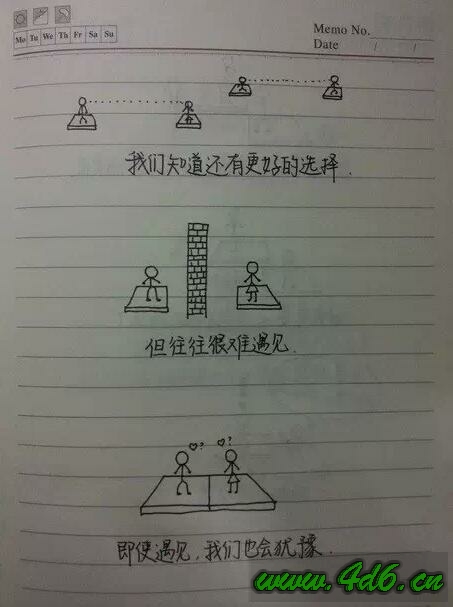 Memo No.
Mo Tu We Th Fr Sa Su
Date / /
我们知道还有更好的选择.
但往往很难遇见.
♡? ♡?
即使遇见,我们也会犹豫.
www.4d6.cn